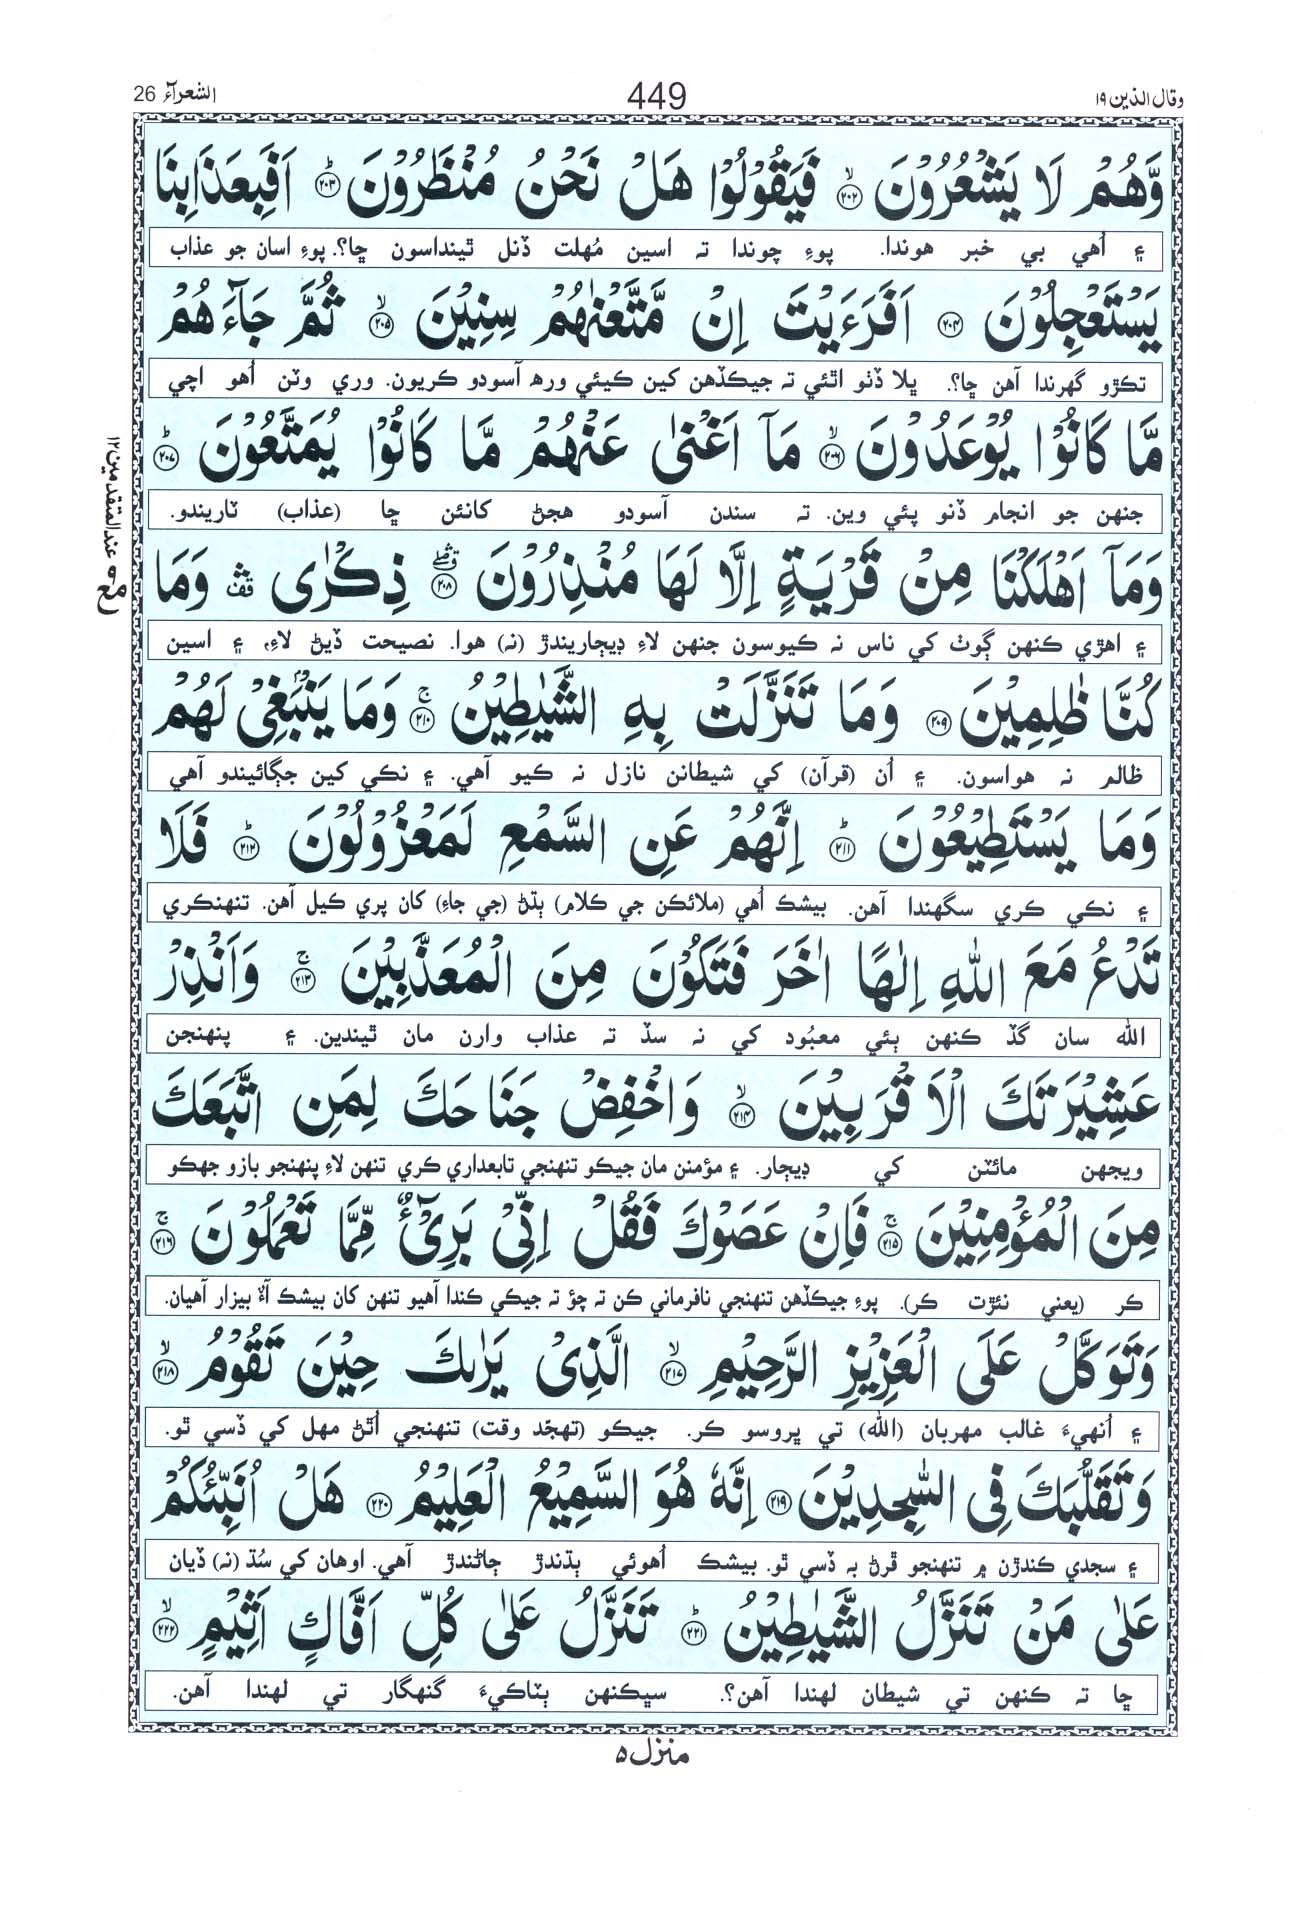 وقال الذين ١٩ 449 الشعرآء 26
وَّهُمْ لَا يَشْعُرُوْنَ ﴿۲۰۲﴾ۙ فَيَقُوْلُوْا هَلْ نَحْنُ مُنْظَرُوْنَ ﴿۲۰۳﴾ؕ اَفَبِعَذَابِنَا
۽ اُهي بي خبر هوندا. پوءِ چوندا تہ اسين مُهلت ڏنل ٿينداسون ڇا؟. پوءِ اسان جو عذاب
يَسْتَعْجِلُوْنَ ﴿۲۰۴﴾ اَفَرَءَيْتَ اِنْ مَّتَّعْنٰهُمْ سِنِيْنَ ﴿۲۰۵﴾ۙ ثُمَّ جَآءَهُمْ
تڪڙو گھرندا آهن ڇا؟. ڀلا ڏٺو اٿئي تہ جيڪڏهن کين ڪيئي ورھ آسودو ڪريون. وري وٽن اُهو اچي
مَّا كَانُوْا يُوْعَدُوْنَ ﴿۲۰۶﴾ۙ مَآ اَغْنٰى عَنْهُمْ مَّا كَانُوْا يُمَتَّعُوْنَ ﴿۲۰۷﴾ؕ
جنهن جو انجام ڏنو پئي وين. تہ سندن آسودو هجڻ کانئن ڇا (عذاب) ٽاريندو.
وَمَآ اَهْلَكْنَا مِنْ قَرْيَةٍ اِلَّا لَهَا مُنْذِرُوْنَ ﴿۲۰۸﴾ ذِكْرٰى وَمَا
۽ اهڙي ڪنهن ڳوٺ کي ناس نہ ڪيوسون جنهن لاءِ ڊيڄاريندڙ (نہ) هوا. نصيحت ڏيڻ لاءِ، ۽ اسين
كُنَّا ظٰلِمِيْنَ ﴿۲۰۹﴾ وَمَا تَنَزَّلَتْ بِهِ الشَّيٰطِيْنُ ﴿۲۱۰﴾ۚ وَمَا يَنْۢبَغِيْ لَهُمْ
ظالم نہ هواسون. ۽ اُن (قرآن) کي شيطانن نازل نہ ڪيو آهي. ۽ نڪي کين جڳائيندو آهي
وَمَا يَسْتَطِيْعُوْنَ ﴿۲۱۱﴾ؕ اِنَّهُمْ عَنِ السَّمْعِ لَمَعْزُوْلُوْنَ ﴿۲۱۲﴾ؕ فَلَا
۽ نڪي ڪري سگهندا آهن. بيشڪ اُهي (ملائڪن جي ڪلام) ٻڌڻ (جي جاءِ) کان پري ڪيل آهن. تنهنڪري
تَدْعُ مَعَ اللهِ اِلٰهًا اٰخَرَ فَتَكُوْنَ مِنَ الْمُعَذَّبِيْنَ ﴿۲۱۳﴾ۚ وَاَنْذِرْ
الله سان گڏ ڪنهن ٻئي معبُود کي نہ سڏ تہ عذاب وارن مان ٿيندين. ۽ پنهنجن
عَشِيْرَتَكَ الْاَقْرَبِيْنَ ﴿۲۱۴﴾ۙ وَاخْفِضْ جَنَاحَكَ لِمَنِ اتَّبَعَكَ
ويجهن مائٽن کي ڊيڄار. ۽ مؤمنن مان جيڪو تنهنجي تابعداري ڪري تنهن لاءِ پنهنجو بازو جهڪو
مِنَ الْمُؤْمِنِيْنَ ﴿۲۱۵﴾ۚ فَاِنْ عَصَوْكَ فَقُلْ اِنِّيْ بَرِيْٓءٌ مِّمَّا تَعْمَلُوْنَ ﴿۲۱۶﴾ۚ
ڪر (يعني نئڙت ڪر). پوءِ جيڪڏهن تنهنجي نافرماني ڪن تہ چؤ تہ جيڪي ڪندا آهيو تنهن کان بيشڪ آءٌ بيزار آهيان.
وَتَوَكَّلْ عَلَى الْعَزِيْزِ الرَّحِيْمِ ﴿۲۱۷﴾ۙ الَّذِيْ يَرٰىكَ حِيْنَ تَقُوْمُ ﴿۲۱۸﴾ۙ
۽ اُنهيءَ غالب مهربان (الله) تي ڀروسو ڪر. جيڪو (تهجّد وقت) تنهنجي اُٿڻ مهل کي ڏسي ٿو.
وَتَقَلُّبَكَ فِي السّٰجِدِيْنَ ﴿۲۱۹﴾ اِنَّهٗ هُوَ السَّمِيْعُ الْعَلِيْمُ ﴿۲۲۰﴾ هَلْ اُنَبِّئُكُمْ
۽ سجدي ڪندڙن ۾ تنهنجو ڦرڻ بہ ڏسي ٿو. بيشڪ اُهوئي ٻڌندڙ ڄاڻندڙ آهي. اوهان کي سُڌ (نہ) ڏيان
عَلٰى مَنْ تَنَزَّلُ الشَّيٰطِيْنُ ﴿۲۲۱﴾ؕ تَنَزَّلُ عَلٰى كُلِّ اَفَّاكٍ اَثِيْمٍ ﴿۲۲۲﴾ۙ
ڇا تہ ڪنهن تي شيطان لهندا آهن؟. سڀڪنهن ٻٽاڪيءَ گنهگار تي لهندا آهن.
منزل ۵
عند المتقدمين ۱۲